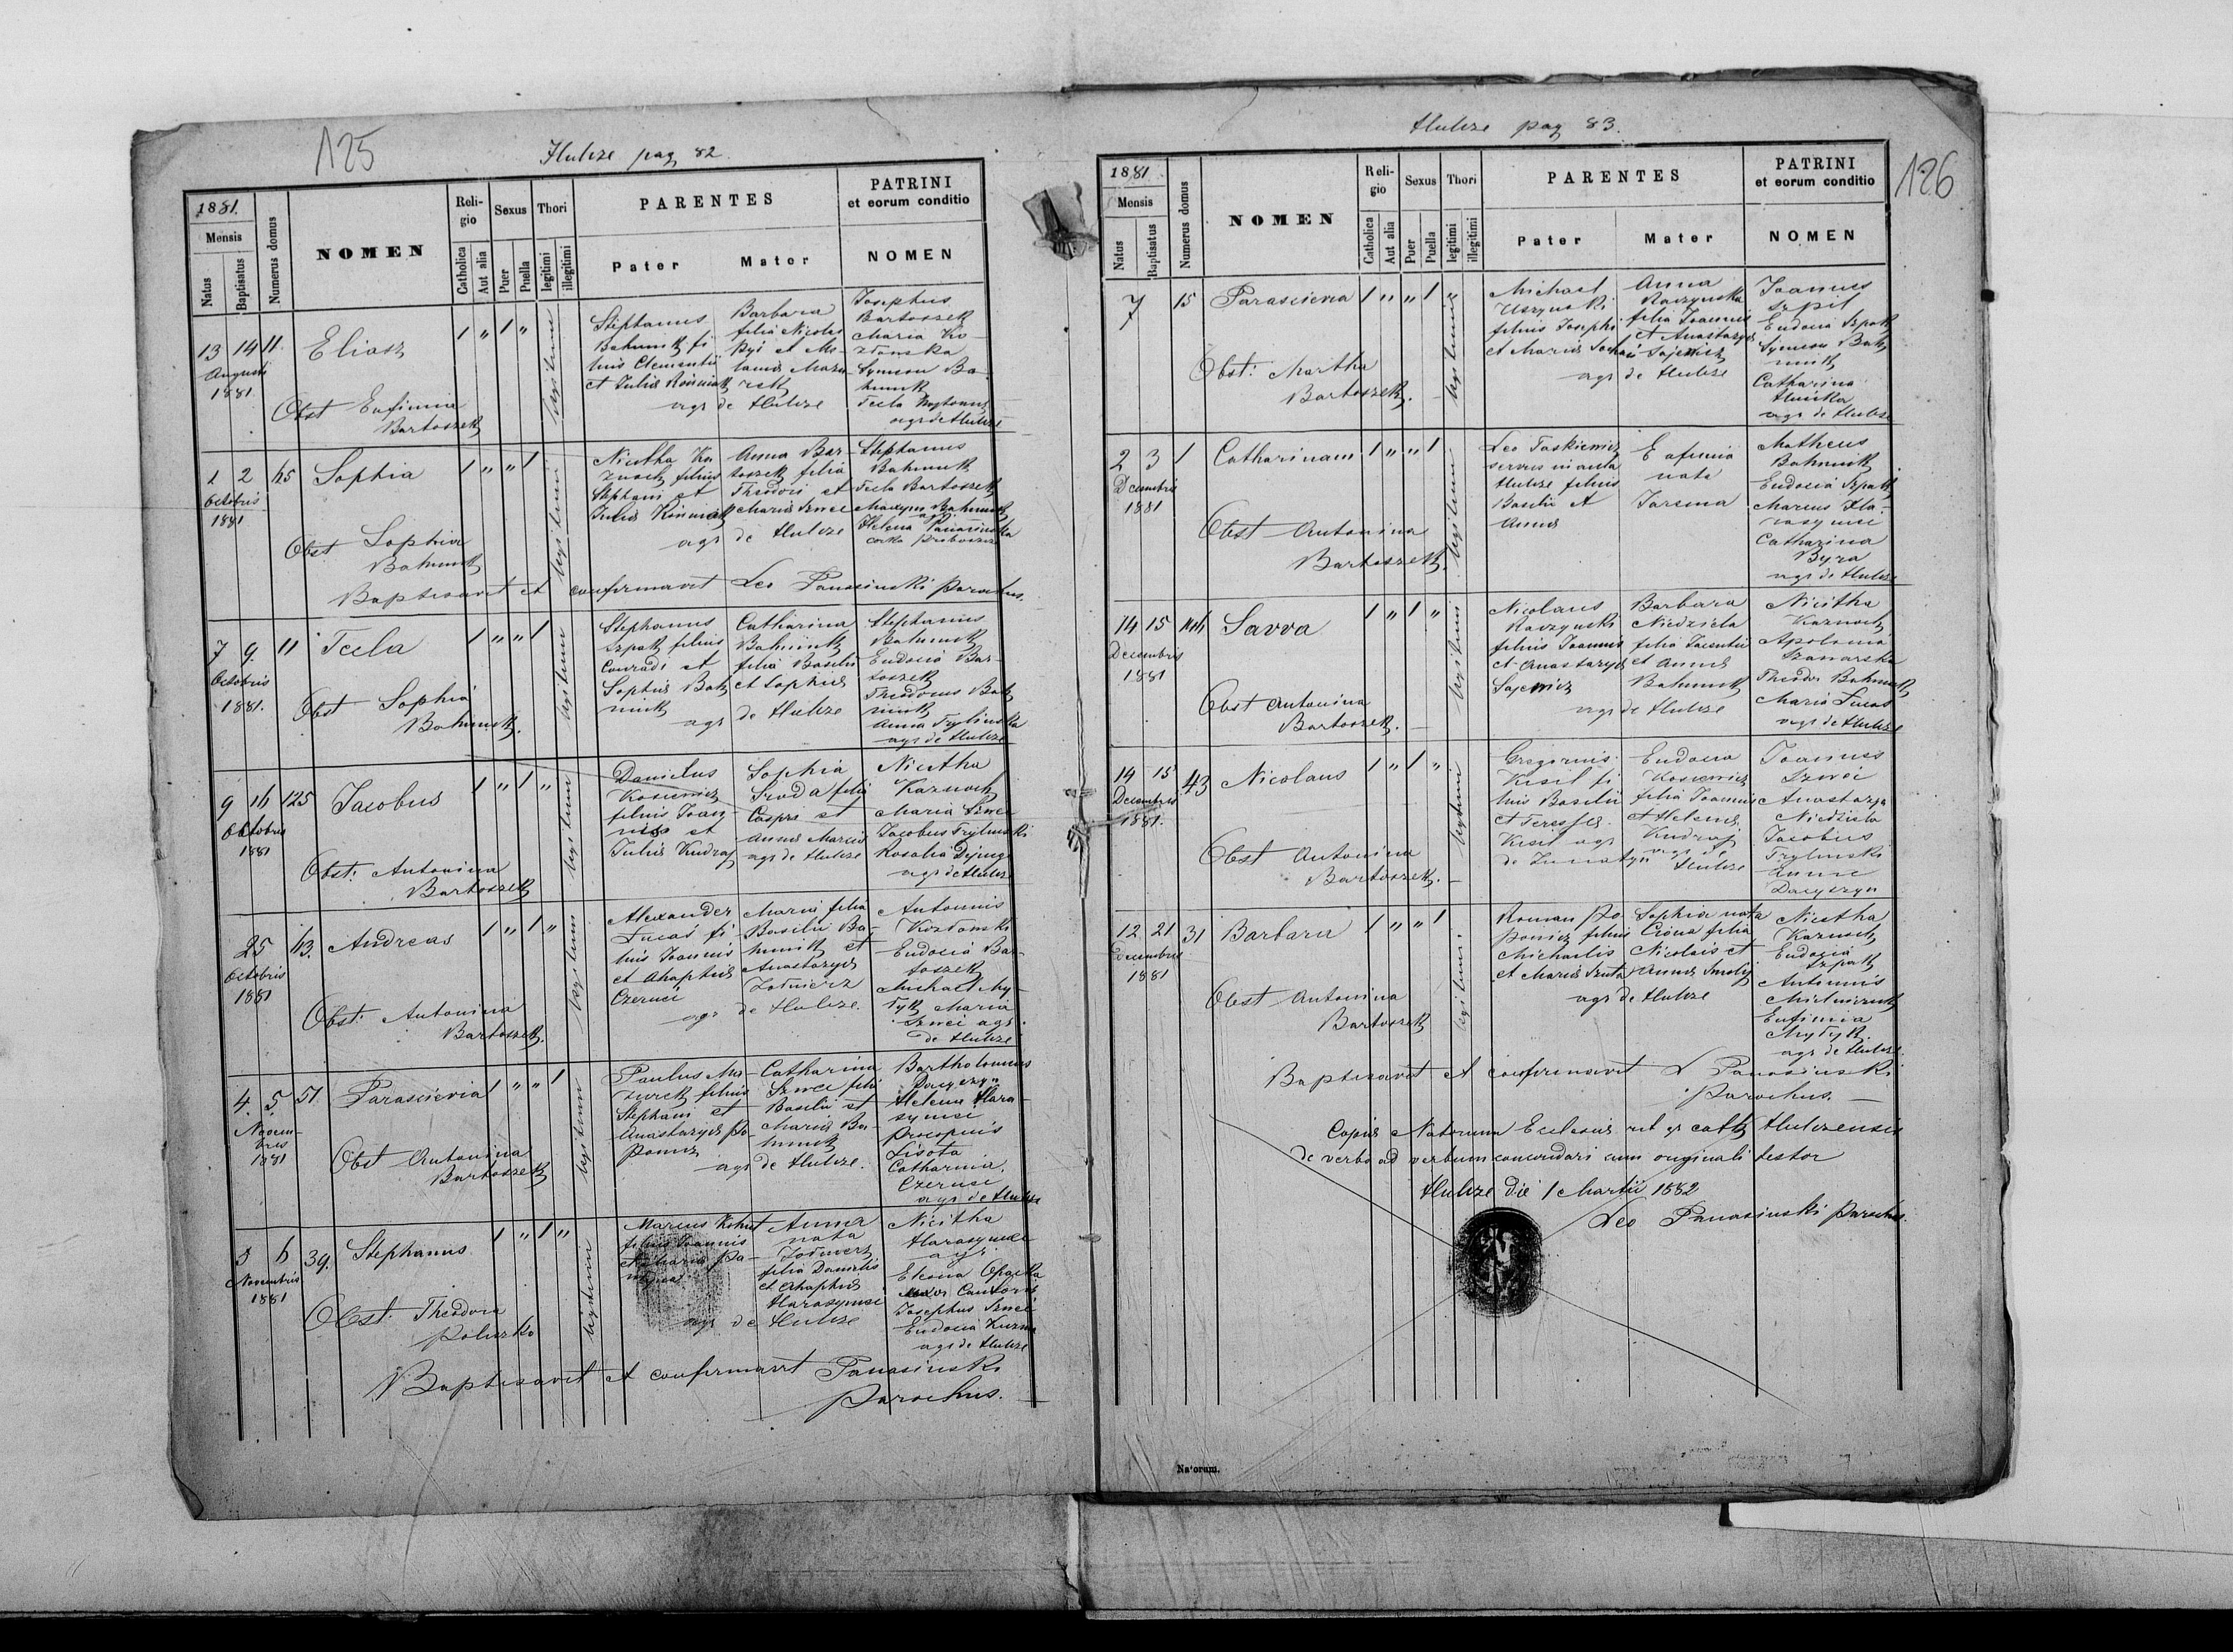 125
Hulcze pag 82
1881.
Mensis
Natus
Baptisatus
Numerus domus
NOMEN
Reli-
gio
Catholica
Aut alia
Sexus
Puer
Puella
Thori
legitimi
illegitimi
PARENTES
Pater
Mater
PATRINI
et eorum conditio
NOMEN
13 14 11. Eliasz 1 " 1 "
Augusti
1881.
Obst Eufimia
Bartoszek
legitimi
Stephanus
Bahunik fi
lius Clementii
et Julia
Barbara
filia Nicolai
et Me-
lania Mazu
rek
agr de Hulcze
Josephus
Bartoszek
Maria Ko-
złonska
Symeon Ba-
hunik
Tecla
agr de Hulcze
1 2 45 Sophia 1 " " 1
Octobris
1881
Obst Sophia
Bahunik
legitimi
Nicetha Ka
znoch filius
Stephani et
Julia
Anna Bar-
toszek filia
Theodori et
Maria Szwec
agr de Hulcze
Stephanus
Bahunik
Tecla Bartoszek
Maxym Bahunik
agr
Helena Panasinska
corka proboszcza
Baptisavit et confirmavit Leo Panasinski Parochus.
7 9 11 Tecla 1 " " 1
Octobris
1881.
Obst Sophia
Bahunik.
legitimi
Stephanus
Szpak filius
Conradi et
Sophia Bah
nuik
Catharina
Bahunik
filia Basilii
et Sophia
agr de Hulcze
Stephanus
Bahunik
Eudocia Bar-
toszek
Theodorus Bah
nuik
Anna Trylinska
agr de Hulcze
9 16 125 Jacobus 1 " 1 "
Oktobris
1881
Obst: Antonina
Bartoszek
legitimi
Danielus
Kosiewicz
filius Joan-
nis et
Julia Kudraj
Sophia
Sroda filia
Caspri et
Anna Marcis
agr de Hulcze
Nicetha
Kaznoch
Maria Szwec
Jacobus Trylinski
Rosalia
agr de Hulcze
25 43. Andreas 1 " 1 "
Octobris
1881
Obst: Antonina
Bartoszek.
legitimi
Alexander
Lucas fi-
lius Joannis
et Ahaphia
Czeruci
Maria filia
Basilii Ba-
hunik et
Anastazya
Żołnierz
agr de Hulcze.
Antonius
Kozłonski
Eudocia Bar-
toszek
Michael My-
tyk Maria
Szwec agr.
de Hulcze
4. 5. 51 Parascievia 1 " " 1
Novem-
bris
1881
Obst Antonina
Bartoszek
legitimi
Paulus Ma-
zurek filius
Stephani et
Anastazya Po-
powicz
Catharina
Szwec filia
Basilii et
Maria Ba-
hunik
agr de Hulcze.
Bartholomeus
Daczyszyn
Helena Hara-
symci
Procopius
Lisota
Catharina
Czeruci
agr de Hulcze
5 6 39. Stephanus 1 " 1 "
Novembris
1881
Obst: Theodora
Poluszko
legitimi
Marcus Kohut
filius Joannis
et Maria Pa-
Anna
nata
Żołnierz
filia Danielis
et Ahaphia
Harasymci
agr de Hulcze
Nicetha
Harasymci
agr
Elena Opacka
uxor Cantoris
Josephus Szwec
Eudocia Kuzma
agr de Hulcze
Baptisavit et confirmavit Panasinski
Parochus.
Hulcze pag 83.
126
1881
Mensis
Natus
Baptisatus
Numerus domus
NOMEN
Reli-
gio
Catholica
Aut alia
Sexus
Puer
Puella
Thori
legitimi
illegitimi
PARENTES
Pater
Mater
PATRINI
et eorum conditio
NOMEN
7 15 Parascievia 1 " " 1 "
Obst: Martha
Bartoszek.
legitimi
Michael
Uszynski
filius Josephi
et Maria
Anna
Raczynska
filia Joannis
et Anastazya
Sajewicz
agr de Hulcze
Joannes
Szpil
Eudocia Szpak
Symeon Bah
nuik
Catharina
agr de Hulcze
2 3 1 Catharinam 1 " " 1
Decembris
1881
Obst Antonina
Bartoszek.
legitimi
Leo Taskiewicz
servus in aula
Hulcze filius
Basilii et
Anna
Eufimia
nata
Jarema
Matheus
Bahunik
Eudocia Szpak
Marcus Ha-
rasymci
Catharina
Byra
agr de Hulcze
14 15 104 Savva 1 " 1 "
Decembris
1881
Obst Antonina
Bartoszek.
legitimi
Nicolaus
Raczynski
filius Joannis
et Anastazya
Sajewicz
Barbara
Niedziela
filia Jacentii
et Anna
Bahunik
agr de Hulcze
Nicetha
Kaznoch
Apolonia
Theodor Bahunik
Maria Lucas
agr de Hulcze
14 15 43 Nicolaus 1 " 1 "
Decembris
1881.
Obst Antonina
Bartoszek.
legitimi
Gregorius
Kisil fi
lius Basilii
et Teressa
Kisil agr
de
Eudocia
Kosiewicz
filia Joannis
et Helena
Kudraj
agr de
Hulcze
Joannes
Szweci
Anastazya
Niedziela
Jacobus
Trylinski
Anna
Daczyszyn
12 21 31 Barbara 1 " " 1
Decembris
1881
Obst Antonina
Bartoszek
legitimi
Roman Po
powicz filius
Michaelis
et Maria Szuta
Sophia nata
filia
Nicolais et
Anna Smolij
agr de Hulcze
Nicetha
Kaznoch
Eudocia
Szpak
Antonius
Mielniczuk
Eufimia
Mytyk
agr de Hulcze
Baptisavit et confirmavit L Panasinski
Parochus.
Copia Natorum Ecclesia rit gr cath Hulczensis
de verbo ad verbum concordari cum originali testor
Hulcze die 1 Martii 1882
Leo Panasinski Parochus.
Natorum.